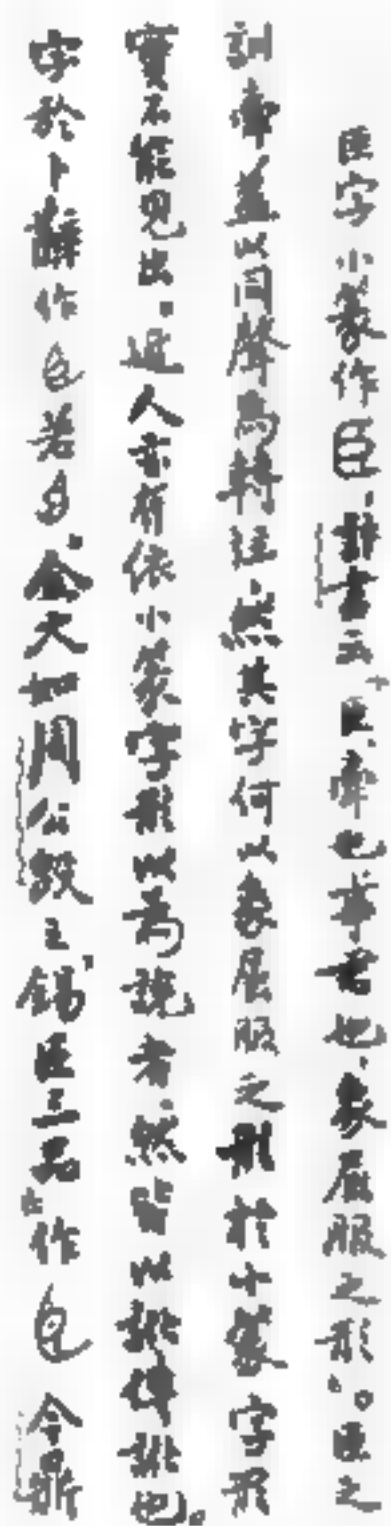 臣字小篆作𦣝，許書云“臣，牽也，事君也，象屈服之形”。臣之
訓牽蓋以同聲為轉注，然其字何以象屈服之形於小篆字形
實不能見出。近人亦有依小篆字形以為說者，然皆以訛傳訛也。
字於卜辭作若，金文如周公𣪘之“錫臣三品”作 令鼎